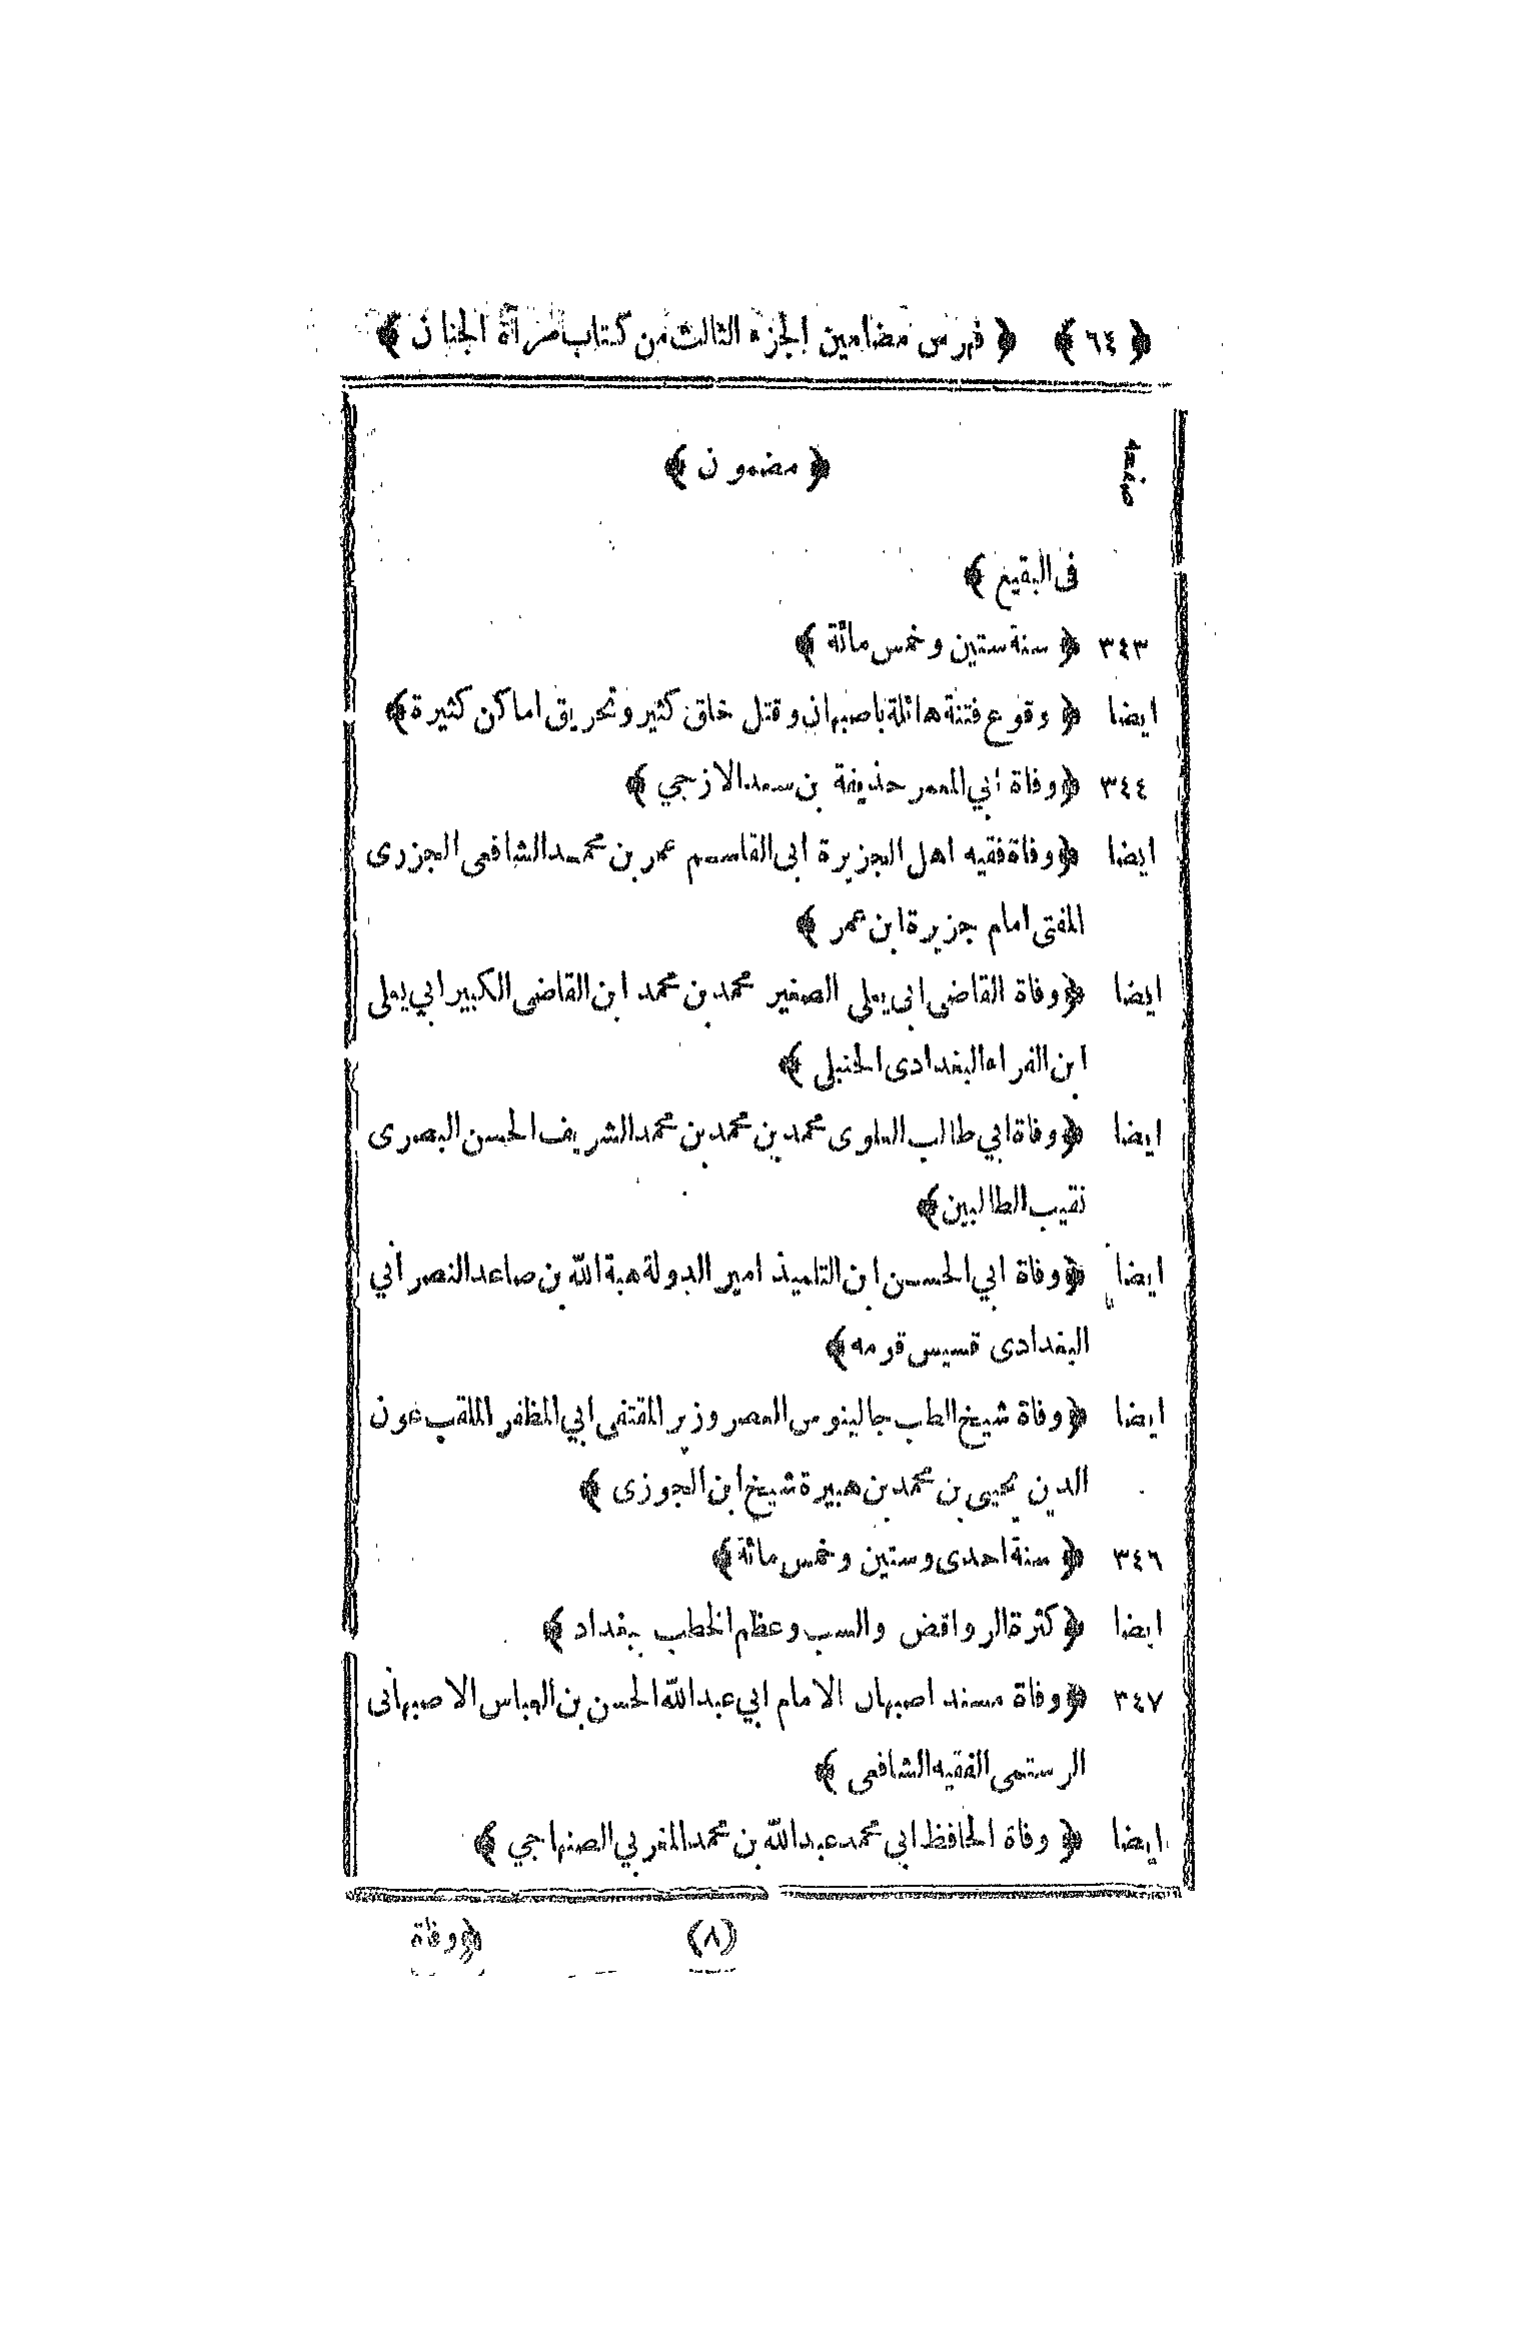 ﴿ ٦٤ ﴾ ﴿ فهرس مضامين الجزء الثالث من كتاب مرآة الجنان ﴾
صفحه ﴿ مضمون ﴾
فى البقيع ﴾
٣٤٣ ﴿ سنة ستين وخمس مائة ﴾
ايضا ﴿ وقوع فتنة هائلة باصبهان وقتل خلق كثير وتحريق اماكن كثيرة ﴾
٣٤٤ ﴿ وفاة ابي المعمر حذيفة بن سعد الازجي ﴾
ايضا ﴿ وفاة فقيه اهل الجزيرة ابى القاسم عمر بن محمد الشافعى الجزرى
المفتى امام جزيرة ابن عمر ﴾
ايضا ﴿ وفاة القاضى ابى يعلى الصغير محمد بن محمد ابن القاضى الكبير ابي يعلى
ابن الفراء البغدادى الحنبلى ﴾
ايضا ﴿ وفاة ابي طالب العلوى محمد بن محمد بن محمد الشريف الحسن البصرى
نقيب الطالبين ﴾
ايضا ﴿ وفاة ابي الحسن ابن التلميذ امير الدولة هبة الله بن صاعد النصراني
البغدادى قسيس قومه ﴾
ايضا ﴿ وفاة شيخ الطب جالينوس العصر وزير المقتفى ابي المظفر الملقب عون
الدين يحيى بن محمد بن هبيرة شيخ ابن الجوزى ﴾
٣٤٦ ﴿ سنة احدى وستين وخمس مائة ﴾
ايضا ﴿ كثرة الروافض والسب وعظم الخطب ببغداد ﴾
٣٤٧ ﴿ وفاة مسند اصبهان الامام ابي عبد الله الحسن بن العباس الاصبهانى
الرستمى الفقيه الشافعى ﴾
ايضا ﴿ وفاة الحافظ ابي محمد عبد الله بن محمد المغربي الصنهاجي ﴾
(٨) ﴿ وفاة